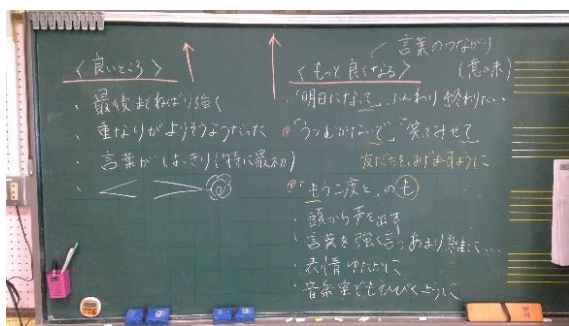 〈良いところ〉
・最後までねばり強く
・重なりがよりそうようだった
・言葉がはっきり(特に最初)
言葉のつながり
(意味)
〈もっと良くなる〉
・「明日になって」ふんわり終わりたい
「うつむかないで」「笑ってみせて」
友だちをはげますように
「もう二度と」の「も」
・頭から声を出す
・言葉を強く言うあまり雑に…
・表情ゆたかに
・音楽室でもひびくように